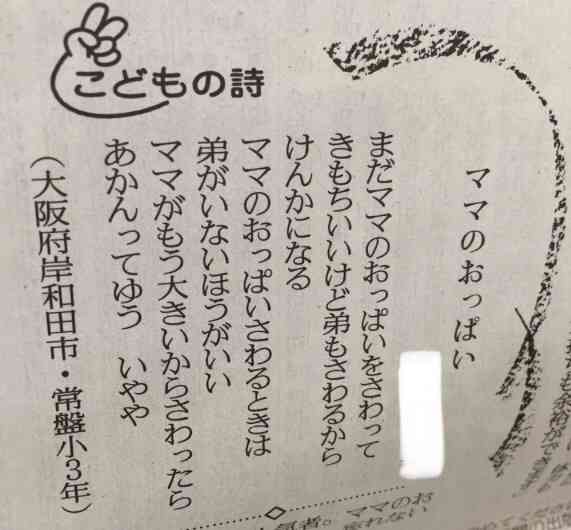 こどもの詩
ママのおっぱい
まだママのおっぱいをさわって
きもちいいけど弟もさわるから
けんかになる
ママのおっぱいさわるときは
弟がいないほうがいい
ママがもう大きいからさわったら
あかんってゆう　いやや
（大阪府岸和田市・常盤小3年）
ママのお